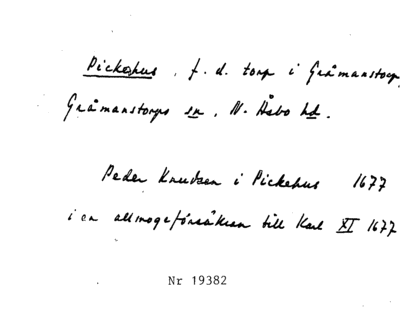 Pickehus, f. d. torp i Gråmanstorp,
Gråmanstorps sn, N. Åsbo hd.
Peder Knudsen i Pickehus 1677
i en allmogeförsäkran till Karl XI 1677
Nr 19382